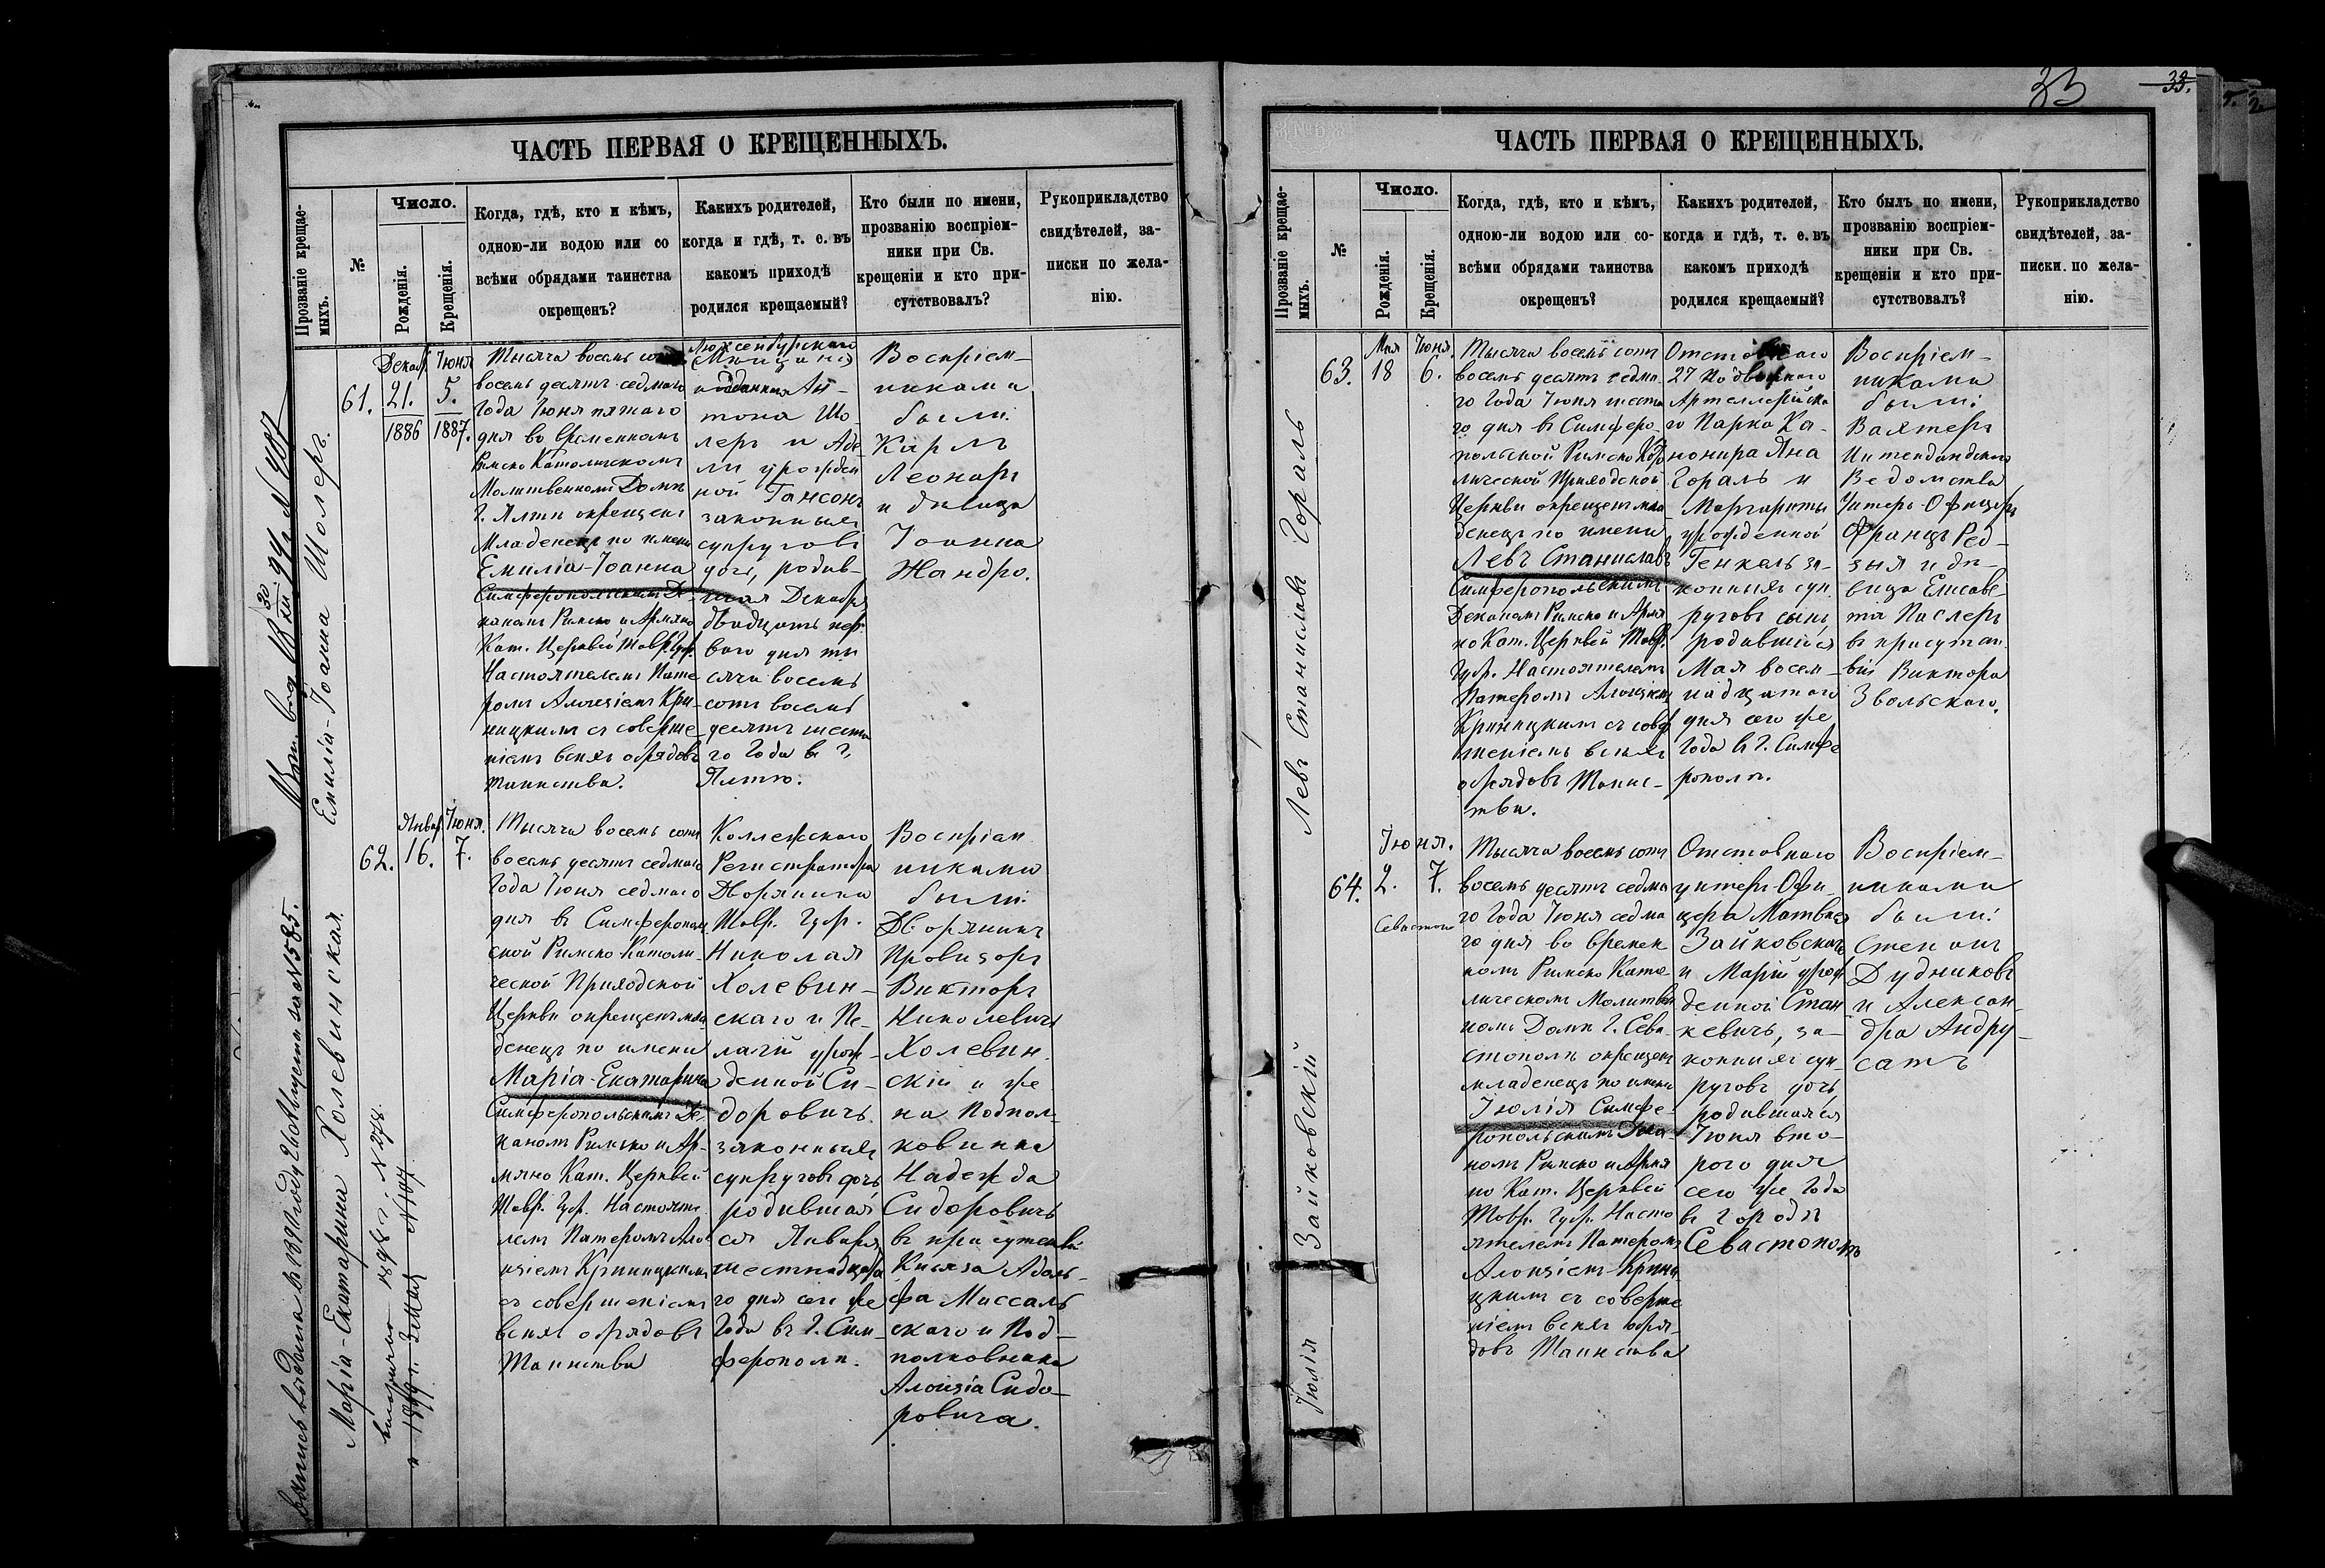 ЧАСТЬ ПЕРВАЯ О КРЕЩЕННЫХЪ.
Прозваніе крещае-
мыхъ.
№
Число.
Рожденія.
Крещенія.
Когда, гдѣ, кто и кѣмъ,
одною-ли водою или со
всѣми обрядами таинства
окрещенъ?
Какихъ родителей,
когда и гдѣ, т. е. въ
какомъ приходѣ
родился крещаемый?
Кто были по имени,
прозванію воспріем-
ники при Св.
крещеніи и кто при-
сутствовалъ?
Рукоприкладство
свидѣтелей, за-
писки по жела-
нію.
Емилія-Іоанна Шолеръ.
61.
Декаб.
21.
1886
Іюня
5.
1887.
Тысяча восемь сотъ
восемь десятъ седмаго
Года Іюня пятаго
дня во временномъ
Римско Католическомъ
Молитвенномъ Домѣ
г. Ялты окрещенъ
Младенецъ по имени
Емилія-Іоанна
Симферопольскимъ Де-
каномъ Римско и Армяно
Кат. Церквей Тавр. Губ.
Настоятелемъ Пате
ромъ Алоизіемъ Кри-
ницкимъ съ соверше
ніемъ всѣхъ обрядовъ
таинства.
Люксенбурскаго
Мѣщаниа
подданнаго Ан-
тона Шо-
леръ и Аде
ли урожден
ной Гансонъ
законныхъ
супруговъ
дочь, родив-
шая Декабря
двадцать пер
ваго дня ты
сяча восемь
сотъ восемь
десятъ шеста
го Года въ г.
Ялтѣ.
Воспріем-
никами
были:
Карлъ
Леонаръ
и дѣвица
Іоанна
Жандро.
Марія-Екатарина Холевинская
вторично 1898 г. № 278.
62.
Январ.
16.
Іюня.
7.
Тысяча восемь сотъ
восемь десятъ седмаго
Года Іюня седмаго
дня въ Симферополь
ской Римско Католи-
ческой Приходской
Церкви окрещенъ мла
денецъ по имени
Марія-Екатарина
Симферопольскимъ Де
каномъ Римско и Ар-
мяно Кат. Церквей
Тавр. Губ. Настояте
лемъ Патеромъ Ало
изіемъ Криницкимъ
съ совершеніемъ
всѣхъ обрядовъ
Таинства
Коллежскаго
Регистратора
Дворянина
Тавр. Губ.
Николая
Холевин-
скаго и Пе-
лагіи урож-
денной Си-
доровичъ
законныхъ
супруговъ дочь
родившая
ся Января
шестнадцата
го дня сего же
Года въ г. Сим-
ферополѣ.
Воспріем
никами
были:
Дворянинъ
Провизоръ
Викторъ
Николевичъ
Холевин.
скій и же
на Подпол-
ковника
Надежда
Сидоровичъ
въ присутствіи
Князя Адоль-
фа Массаль
скаго и Под-
полковника
Алоизіа Сидо-
ровича.
33
33.
ЧАСТЬ ПЕРВАЯ О КРЕЩЕННЫХЪ.
Прозваніе крещае-
мыхъ.
№
Число.
Рожденія.
Крещенія.
Когда, гдѣ, кто и кѣмъ,
одною-ли водою или со-
всѣми обрядами таинства
окрещенъ?
Какихъ родителей,
когда и гдѣ, т. е. въ
какомъ приходѣ
родился крещаемый?
Кто былъ по имени,
прозванію воспріем-
ники при Св.
крещеніи и кто при-
сутствовалъ?
Рукоприкладство
свидѣтелей, за-
писки по жела-
нію.
Левъ Станиславъ Гораль
63.
Мая
18
Іюня.
6.
Тысяча восемь сотъ
восемь десятъ седма-
го Года Іюня шеста
го дня въ Симферо-
польской Римско Като
лической Приходской
Церкви окрещенъ мла
денецъ по имени
Левъ Станиславъ
Симферопольскимъ
Деканомъ Римско и Армя
но Кат. Церквей Тавр.
Губ. Настоятелемъ
Патеромъ Алоизіемъ
Криницкимъ съ совер
шеніемъ всѣхъ
обрядовъ Таинс-
тва.
Отставнаго
27 Подвижнаго
Артиллерійска
го Парка Ка-
нонира Яна
Гораль и
Маргариты
урожденной
Генкель за-
конныхъ суп
руговъ сынъ,
родившійся
Мая восем-
надцатаго
дня сего же
Года въ г. Симфе
рополѣ.
Воспріем-
никами
были:
Вахтеръ
Интендандскаго
Ведомства
Унтеръ-Офицеръ
Францъ Ред-
зыя и дѣ-
вица Елисаве-
та Паслеръ
въ присутст.
віи Виктора
Звольскаго.
Іюлія Зайковскій
64.
Іюня.
2.
7.
Севастопол
Тысяча восемь сотъ
восемь десятъ седма
го Года Іюня седма
го дня во времен
номъ Римско Като
лическомъ Молитвен
номъ Домѣ г. Сева-
стополѣ окрещенъ
младенецъ по имени
Іюлія Симфе-
ропольскимъ Дека
номъ Римско и Армя
но Кат. Церквей
Тавр. Губ. Насто
ятелемъ Патеромъ
Алоизіемъ Крини
цкимъ съ соверше
ніемъ всѣхъ обря-
довъ Таинства
Отставнаго
унтеръ-Офи-
цера Матвея
Зайковскаго
и Маріи урож
денной Стан
кевичъ, за-
конныхъ суп-
руговъ дочь
родившаяся
Іюня вто-
рого дня
сего же Года
въ городѣ
Севастополѣ
Воспріем-
никами
были:
Степанъ
Дудниковъ
и Алексан-
дра Андру-
сатъ